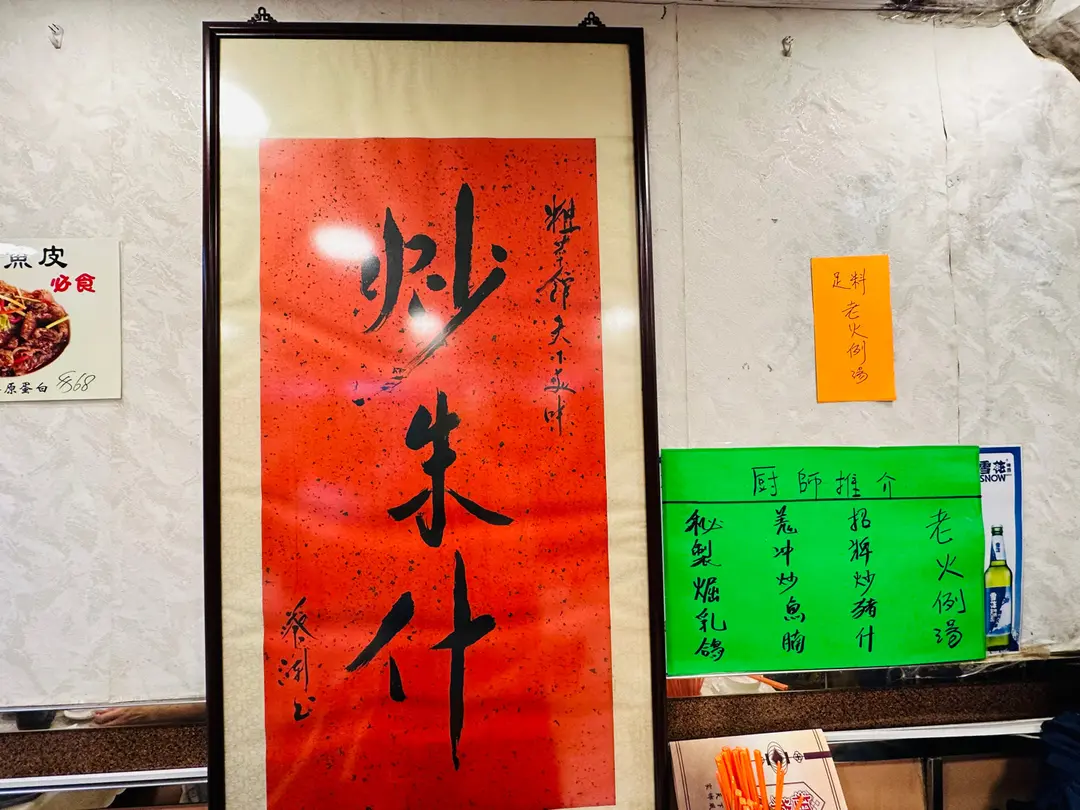 魚皮
必食
原蛋白 $68
粗菜館天下美味
炒朱什
蔡瀾书
足料
老火例湯
厨師推介
老火例湯
招牌炒豬什
羗冲炒魚腩
秘製焗乳鴿
雪花
SNOW